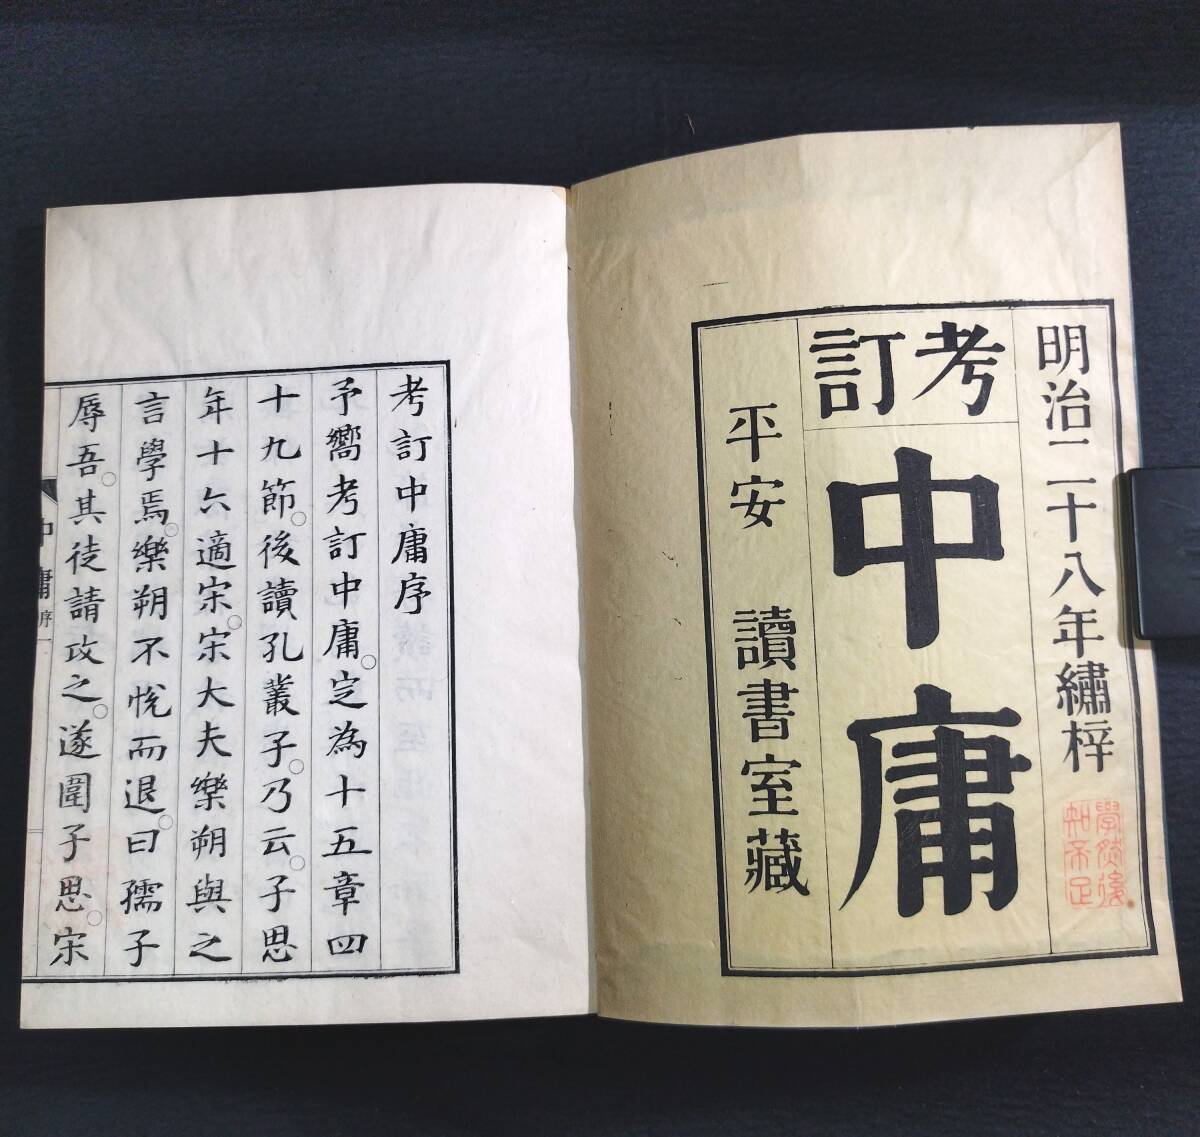 明治二十八年繡梓
學然後
知不足
考訂
中庸
平安 讀書室藏
考訂中庸序
予嚮考訂中庸。定為十五章四
十九節。後讀孔叢子。乃云。子思
年十六適宋。宋大夫樂朔與之
言學焉。樂朔不悅而退。曰孺子
辱吾。其徒請攻之。遂圍子思。宋
中庸 序 一